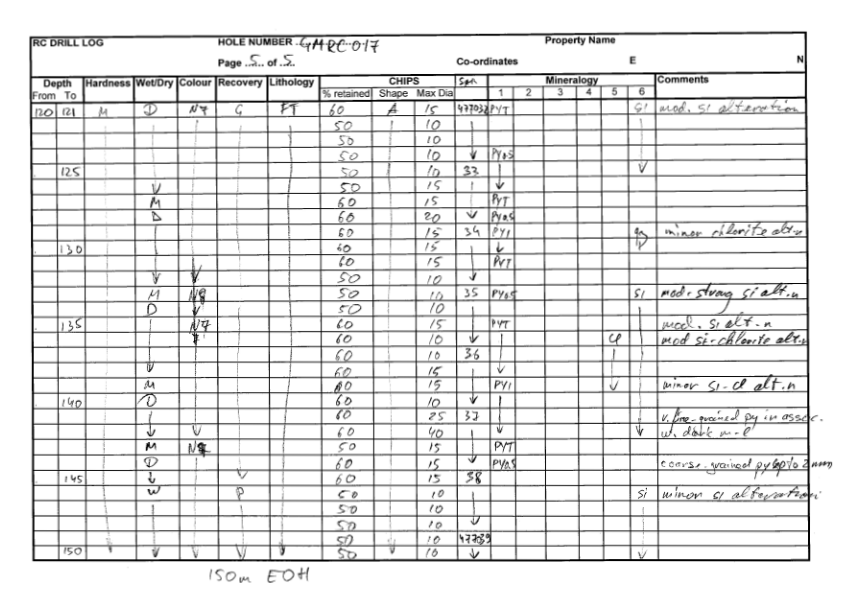 RC DRILL LOG HOLE NUMBER GMRC017 Property Name
Page 5 of 5 Co-ordinates E N
Depth Hardness Wet/Dry Colour Recovery Lithology CHIPS Spn Mineralogy Comments
From To % retained Shape Max Dia 1 2 3 4 5 6
120 121 M D N7 G FT 60 A 15 477032 PYT SI mod. SI alteration
50 10
50 10
50 10 PY0.5
125 50 10 33
50 15
M 60 15 PYT
D 60 20 PY0.5
60 15 34 PY1 minor chlorite alt.n
130 60 15
60 15 PYT
50 10
M N8 50 10 35 PY0.5 SI mod-strong si alt.n
D 50 10
135 N7 60 15 PYT mod. si alt-n
60 10 cl mod si-chlorite alt.n
60 10 36
60 15
M 60 15 PY1 minor si-cl alt.n
140 D 60 10
60 25 37 v.fine-grained py in assoc.
60 40 w. dark
M 50 15 PYT
D 60 15 PY0.5 coarse-grained py up to 2mm
145 60 15 38
W P 50 10 Si minor si alteration
50 10
50 10
50 10 477039
150 50 10
150m EOH